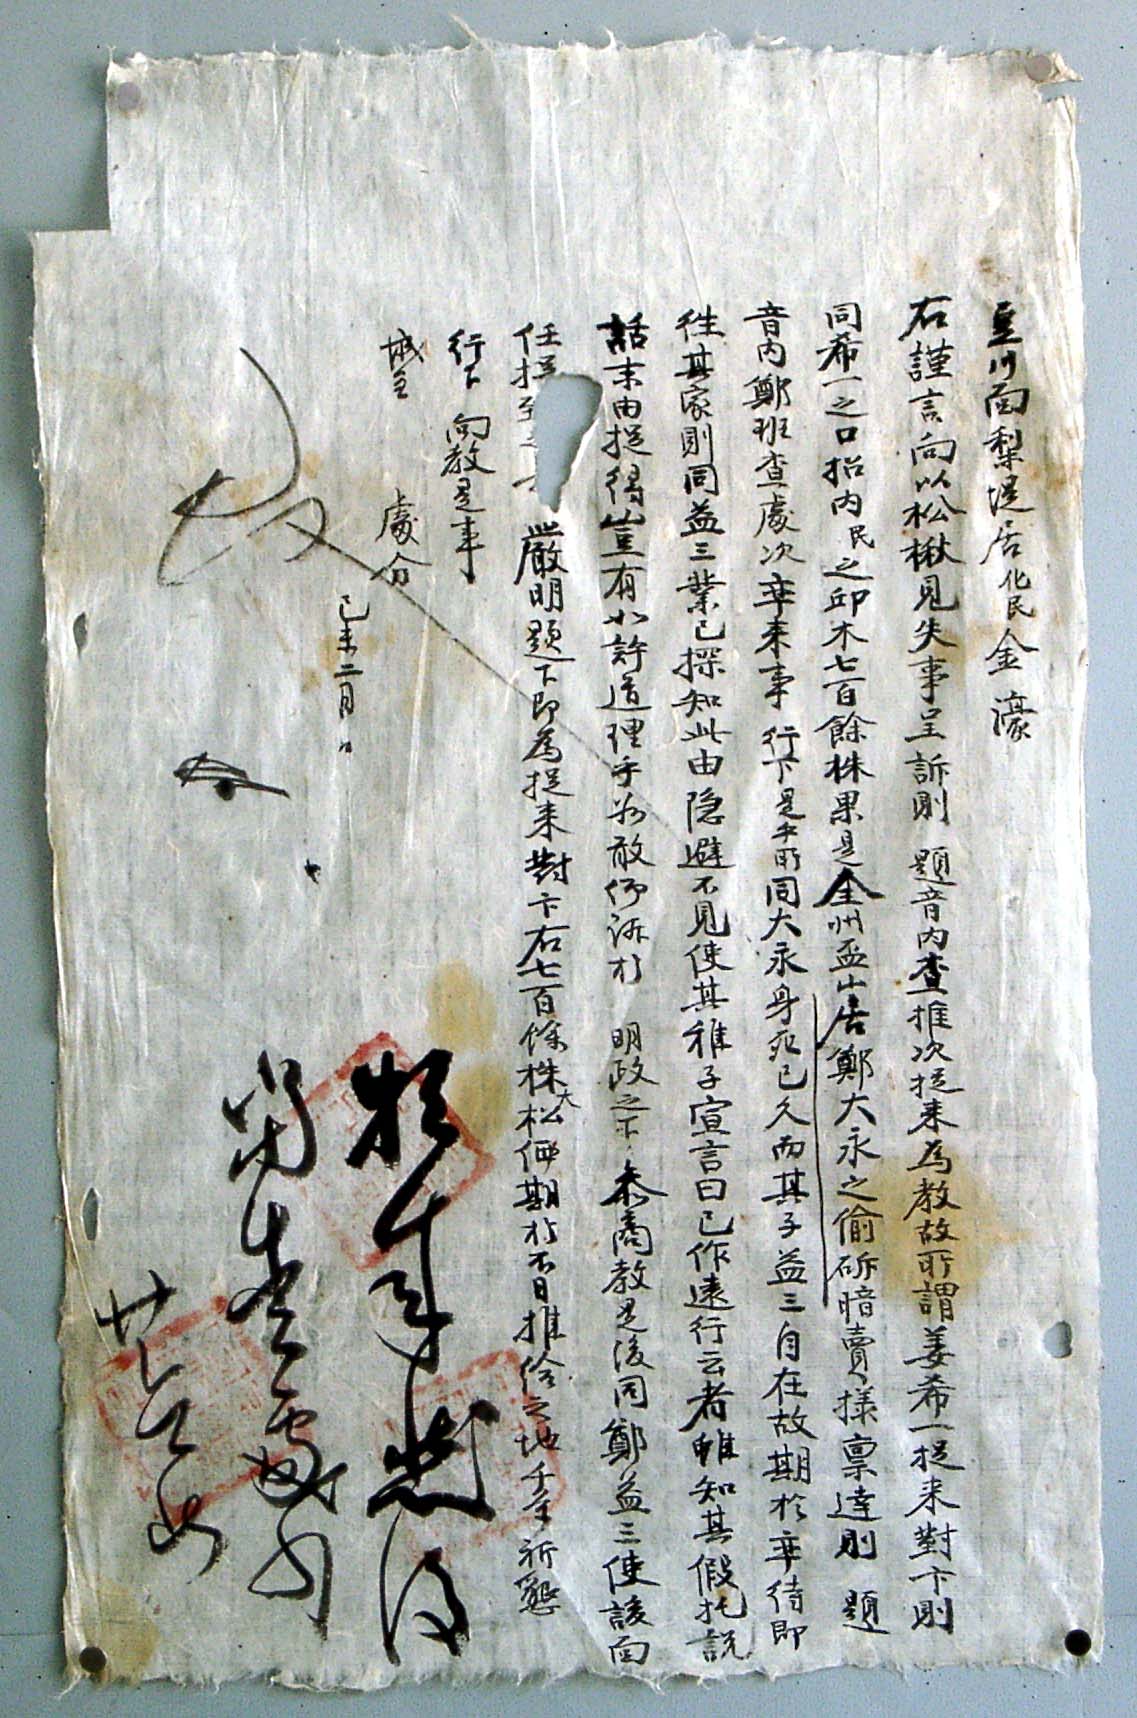 豆川面梨堤居化民金濠
右謹言向以松楸見失事呈訴則 題音內查推次捉来為教故所謂姜希一捉来對卞則
同希一之口招內民之邱木七百餘株果是全州盃山居鄭大永之偷斫暗賣樣稟達則 題
音內鄭班查處次率来事 行下是乎所同大永身死已久而其子益三自在故期於率待即
徃其家則同益三業已探知此由隐避不見使其稚子宣言曰已作遠行云者雖知其假托說
話末由捉得豈有如許道理乎玆敢仰訴於 明政之下 叅商教是後同鄭益三使該面
任捉致之 嚴明題下即為捉来對卞右七百餘株大松価期於不日推給之地千万祈懇
行下 向教是事
城主 處分
己未二月 日